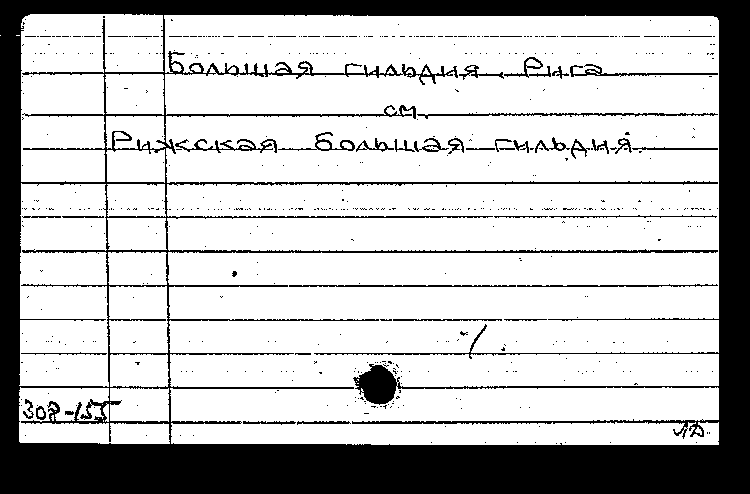 Большая гильдия. Рига
см.
Рижская большая гильдия.
308-155
ЛД